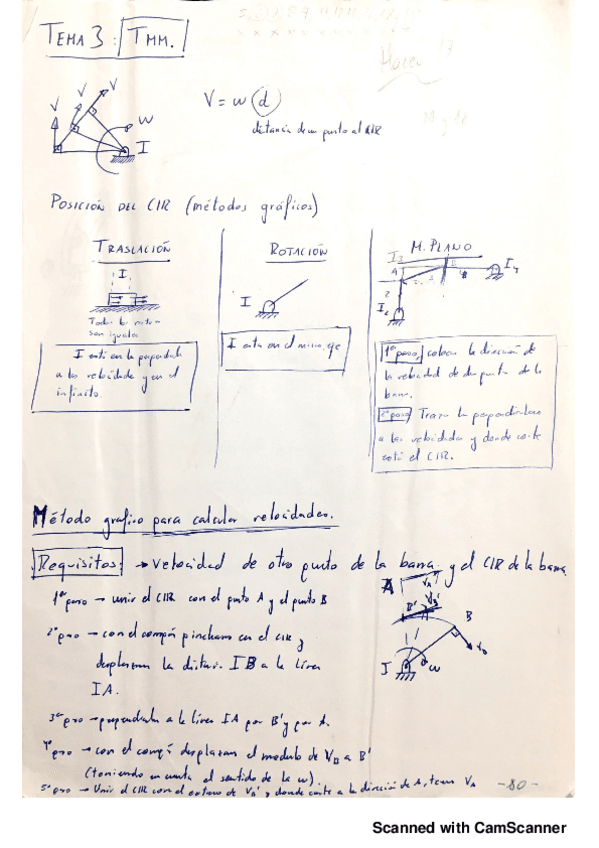 TEMA 3: TMM.
V V V
V = w (d)
W
distancia de un punto al CIR
I
POSICIÓN DEL CIR (métodos gráficos)
TRASLACIÓN
ROTACIÓN
M. PLANO
I
I
I3
I4
I2
A
2
Todos
son iguales
I está en la perpendicular
a las velocidades y en el
infinito.
I esta en el mismo eje
1er paso, colocar la dirección de
la velocidad de dos puntos de la
barra.
2º paso Trazar la perpendiculares
a las velocidades y donde corte
está el CIR.
Método grafico para calcular velocidades.
Requisitos: → velocidad de otro punto de la barra y el CIR de la barra.
1er paso → unir el CIR con el punto A y el punto B
2º paso → con el compás pinchamos en el CIR y
desplazamos la distancia IB a la línea
IA.
3er paso → perpendicular a la línea IA por B' y por A.
4º paso → con el compás desplazam el modulo de VB a B'
(teniendo en cuenta el sentido de la w)
5º paso → Unir el CIR con el extremo de VB' y donde corte a la dirección de A, tenem VA
A
VA
B'
VB'
B
VB
I
W
-80-
Scanned with CamScanner